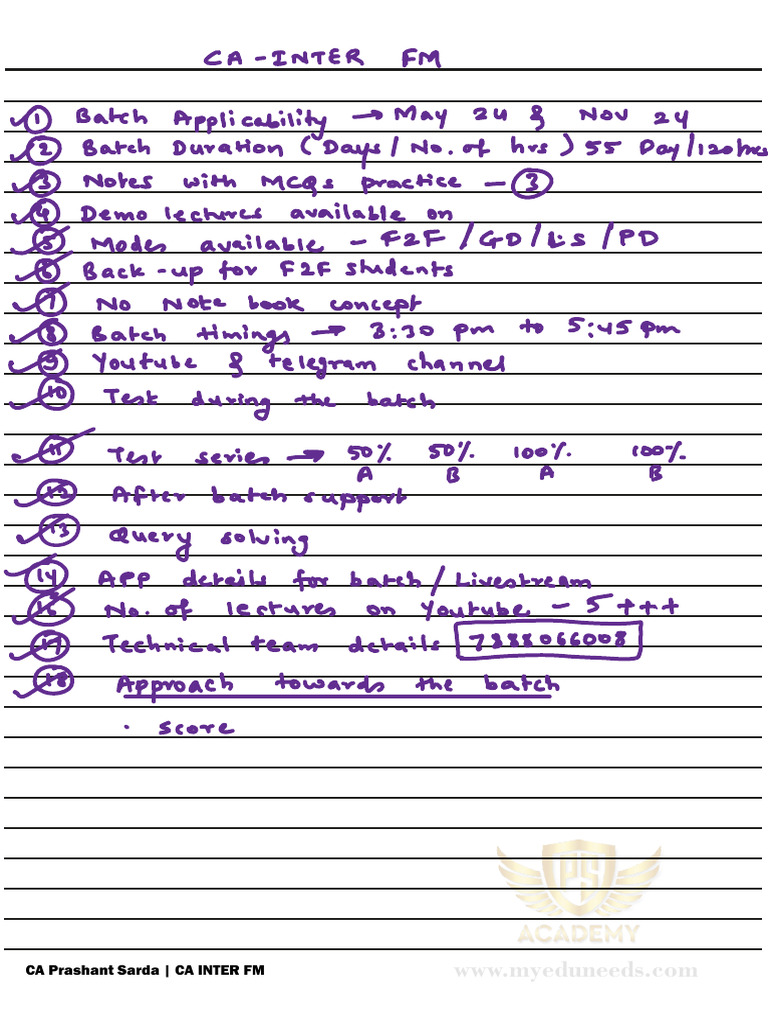 CA-INTER FM
1 Batch Applicability → May 24 & Nov 24
2 Batch Duration (Days / No. of hrs) 55 Day/120hrs
3 Notes with MCQs practice - 3
4 Demo lectures available on
5 Modes available - F2F / GD / LS / PD
6 Back-up for F2F students
7 No Note book concept
8 Batch timings → 3:30 pm to 5:45 pm
9 Youtube & telegram channel
10 Test during the batch
11 Test series → 50% 50% 100% 100%
A B A B
12 After batch support
13 Query solving
14 App details for batch / Livestream
16 No. of lectures on Youtube - 5+++
17 Technical team details 7888066008
18 Approach towards the batch
· Score
PS
ACADEMY
CA Prashant Sarda | CA INTER FM
www.myeduneeds.com